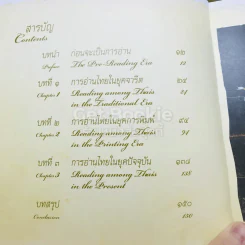 สารบัญ
Contents
บทนำ ก่อนจะเป็นการอ่าน ๑๒
Preface The Pre-Reading Era 12
บทที่ ๑ การอ่านไทยในยุคจารีต ๒๔
Chapter 1 Reading among Thais 24
in the Traditional Era
บทที่ ๒ การอ่านไทยในยุคการพิมพ์ ๙๔
Chapter 2 Reading among Thais
in the Printing Era
บทที่ ๓ การอ่านไทยในยุคปัจจุบัน ๑๓๘
Chapter 3 Reading among Thais 138
in the Present
บทสรุป ๑๕๐
Conclusion 150